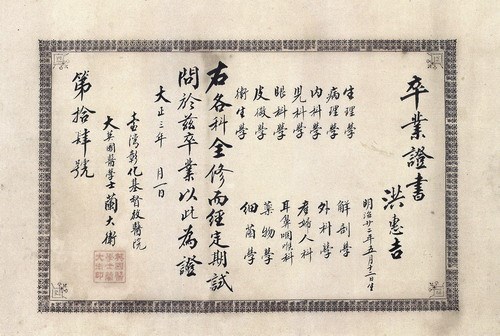 卒業證書
洪惠吉
明治廿二年五月十一日生
生理學 解剖學
病理學 外科學
內科學 產婦人科
児科學 耳鼻咽喉科
眼科學 藥物學
皮膚學 細菌學
衛生學
右各科全修而經定期試
問於茲卒業以此為證
大正三年 月一日
臺灣彰化基督教醫院
大英國醫學士 蘭大衛
第拾肆號